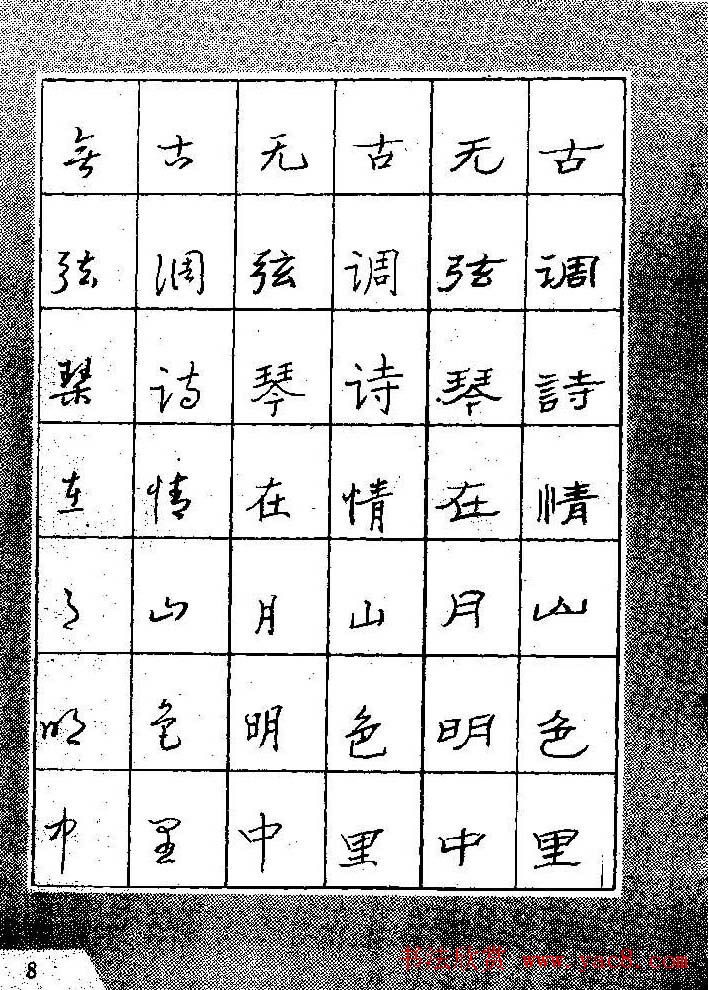 古调詩情山色里
无弦琴在月明中
古调诗情山色里
无弦琴在月明中
古调诗情山色里
無弦琴在月明中
8
书法欣赏 www.yac8.com